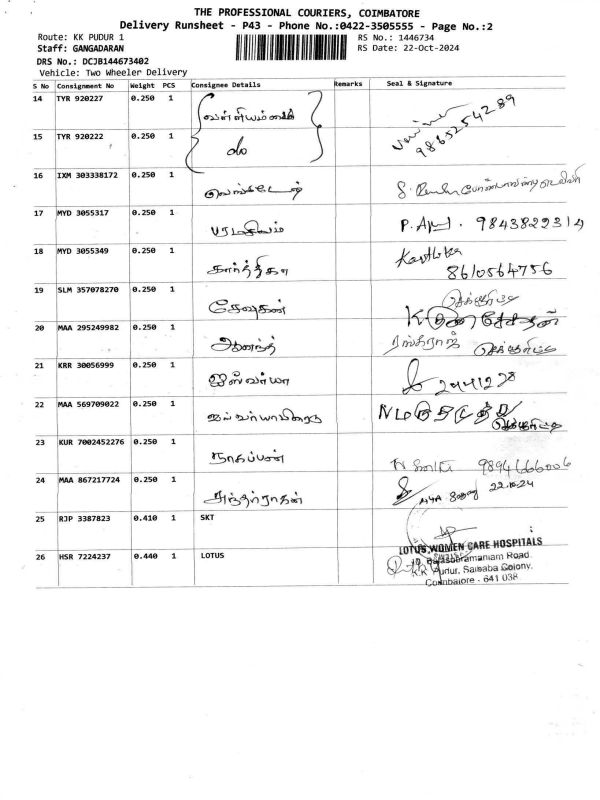 THE PROFESSIONAL COURIERS, COIMBATORE
Delivery Runsheet - P43 - Phone No.:0422-3505555 - Page No.:2
Route: KK PUDUR 1 RS No.: 1446734
Staff: GANGADARAN RS Date: 22-Oct-2024
DRS No.: DCJB144673402
Vehicle: Two Wheeler Delivery
S No Consignment No Weight PCS Consignee Details Remarks Seal & Signature
14 TYR 920227 0.250 1 வள்ளியம்மை
9865254289
15 TYR 920222 0.250 1 do
16 IXM 303338172 0.250 1 வெங்கடேஷ்
17 MYD 3055317 0.250 1 பரமசிவம் 9843822314
18 MYD 3055349 0.250 1 கார்த்திகா Karthika
8610564756
19 SLM 357078270 0.250 1 சேவுகன்
20 MAA 295249982 0.250 1 ஆனந்த்
21 KRR 30056999 0.250 1 ஐஸ்வர்யா
22 MAA 569709022 0.250 1
23 KUR 7002452276 0.250 1 நாகப்பன் 9894666006
24 MAA 867217724 0.250 1 22.10.24
25 RJP 3387823 0.410 1 SKT
26 HSR 7224237 0.440 1 LOTUS LOTUS WOMEN CARE HOSPITALS
Balasubramaniam Road
KK Pudur, Saibaba Colony,
Coimbatore - 641 038